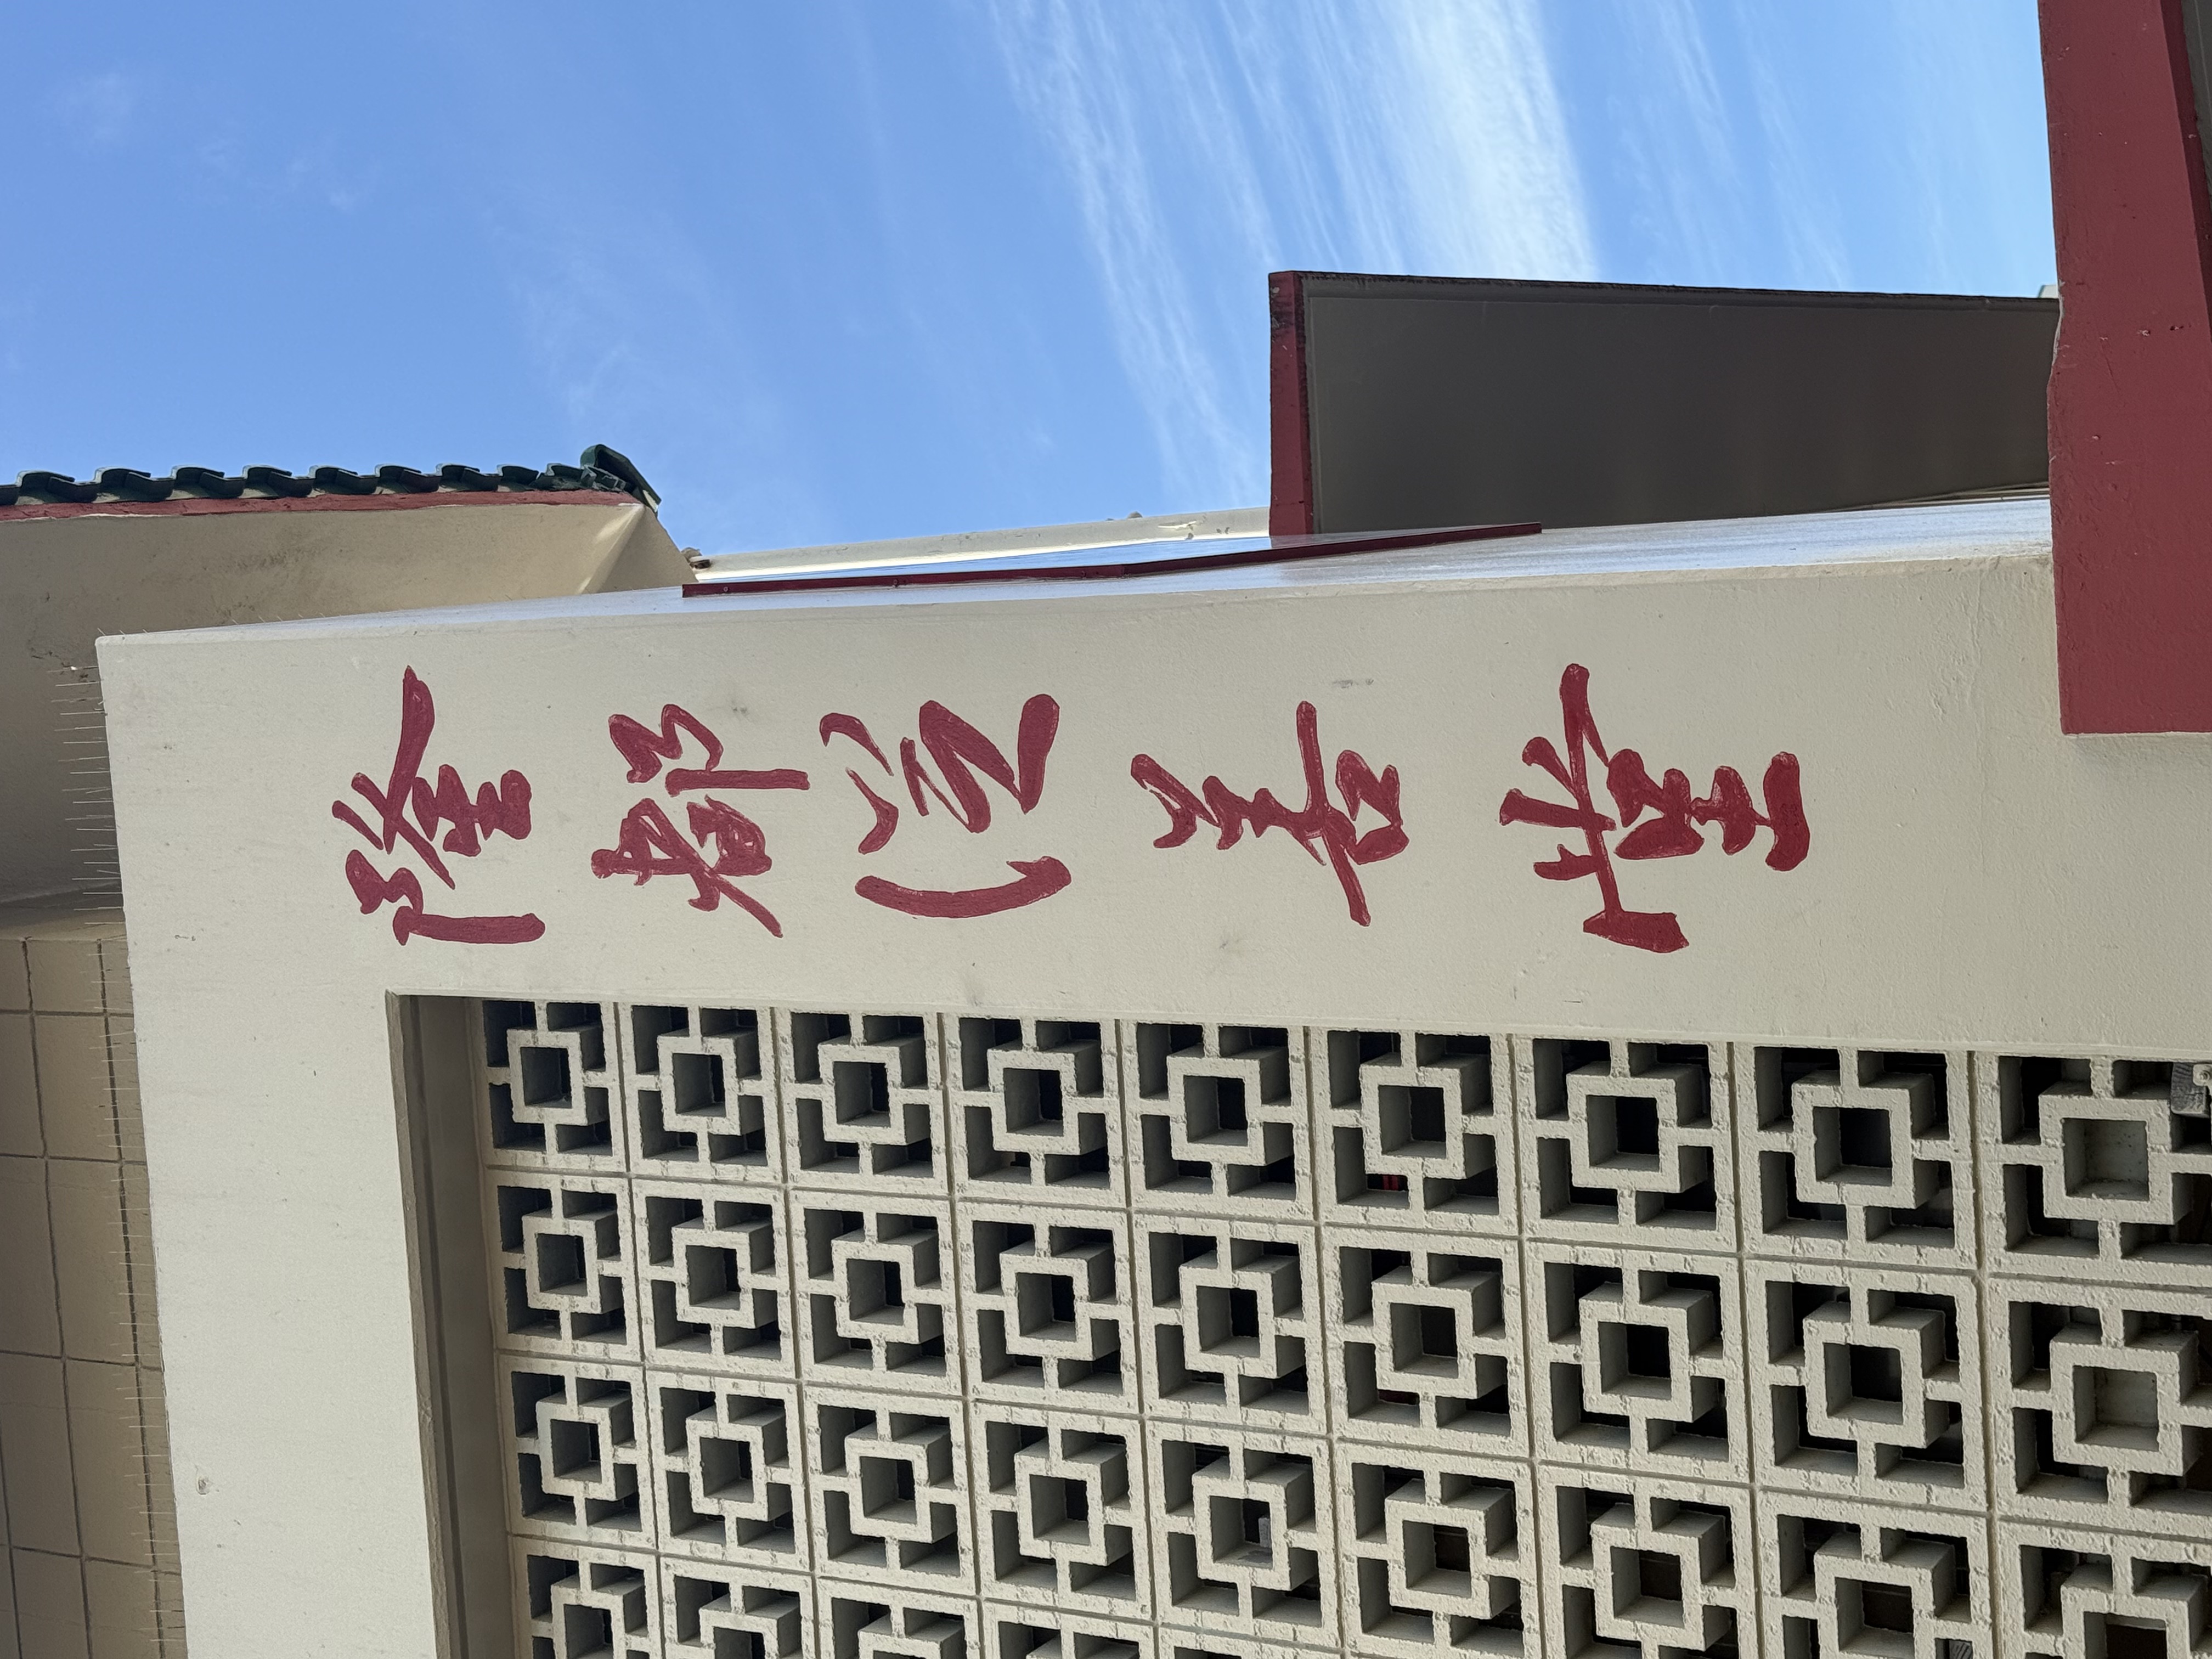 隆都從善堂